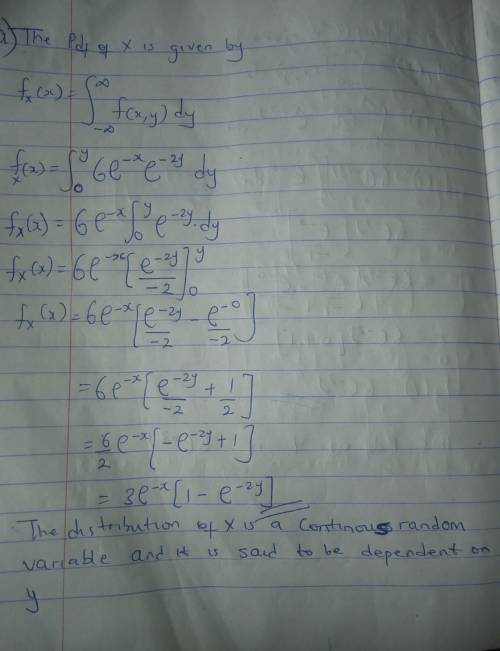 a) The Pdf of X is given by
fx(x) = ∫_{-∞}^{∞} f(x,y) dy
fx(x) = ∫_0^y 6e^{-x} e^{-2y} dy
fx(x) = 6e^{-x} ∫_0^y e^{-2y}. dy
fx(x) = 6e^{-x} [e^{-2y}/-2]_0^y
fx(x) = 6e^{-x} [e^{-2y}/-2 - e^{-0}/-2]
= 6e^{-x} [e^{-2y}/-2 + 1/2]
= 6/2 e^{-x} [-e^{-2y} + 1]
= 3e^{-x} [1 - e^{-2y}]
The distribution of X is a Continous random
variable and it is said to be dependent on
y